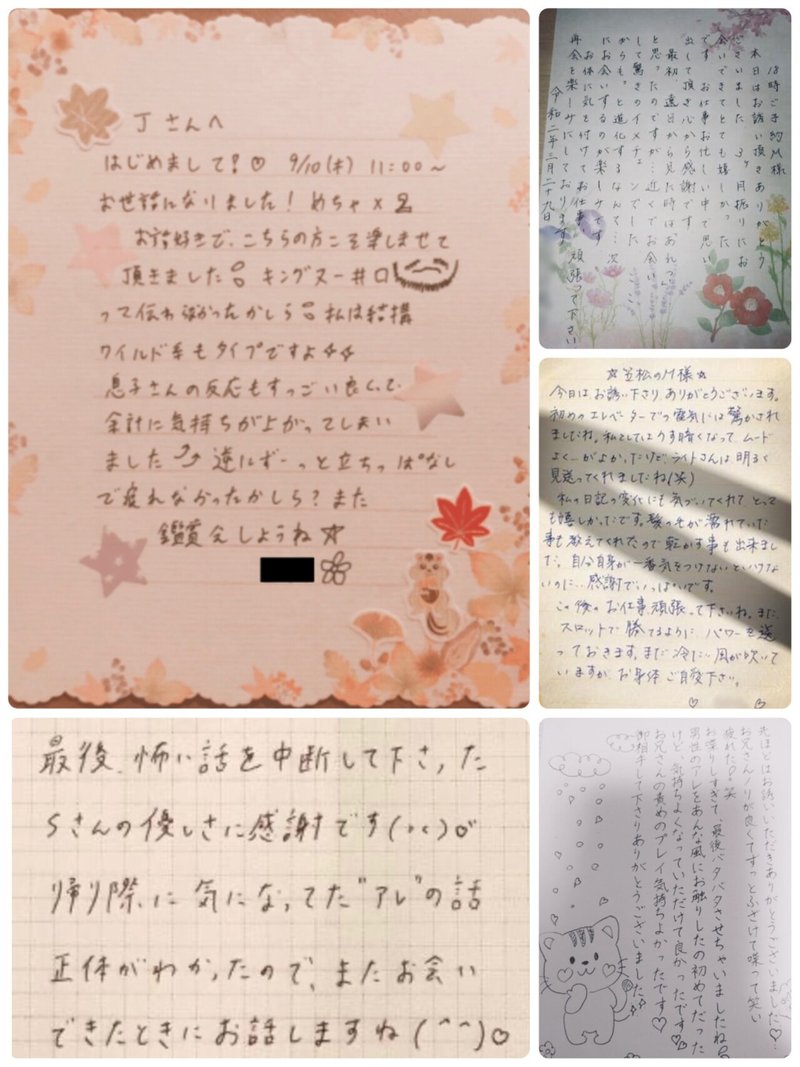 Jさんへ
はじめまして!♡ 9/10(木) 11:00~
お世話になりました! めちゃ×2
お話好きで、こちらの方こそ楽しませて
頂きました キングヌー井口
って伝わったかしら 私は結構
ワイルド系もタイプですよ
息子さんの反応もすっごい良くて
余計に気持ちが上がってしまい
ました 逆にずーっと立ちっぱなし
で疲れなかったかしら? また
鑑賞会しようね☆
18時ごき約M様
本日はお誘い頂きありがとう
ございました。3ヶ月振りにお
会いできてとても嬉しかった
です。お仕事お忙しい中で思い
出して頂き心から感謝です
最初、遠目から見た時はあれっ?
と思ったのですが…近くでお会い
して驚きのイメチェンでした
から。もっと進化するなんて…次
にお会いするのが楽しみです
お体に気を付けてお仕事頑張って下さい
再会を楽しみにしております。
令和二年三月二十九日
☆笠松のM様☆
今日は、お誘い下さり、ありがとうございます。
初めのエレベーターでの電気には驚かされ
ましたね。私としてはうす暗くなって、ムード
よく…がよかったけど、ライトさんは明るく
見送ってくれましたね(笑)
私の日記の変化にも気づいてくれて、とって
も嬉しかったです。髪のモが濡れていた
事も教えてくれたので乾かす事も出来まし
た。自分自身が一番気をつけないといけな
いのに…感謝でいっぱいです。
この後のお仕事、頑張って下さいね。また、
スロットで勝てるように、パワーを送
っておきます。まだ冷たい風が吹いて
いますが、お身体ご自愛下さい。
最後、怖い話を中断して下さった
Sさんの優しさに感謝です
帰り際に気になってた"アレ"の話
正体がわかったので、またお会い
できたときにお話しますね(^^)♡
先ほどはお誘いいただきありがとうございました♡
お兄さんノリが良くてずっとふざけて喋って笑い
疲れた 笑
お喋りしすぎて、最後バタバタさせちゃいましたね
男性のアレをあんな風にお触りしたの初めてだった
けど、気持ちよくなっていただけて良かったです♡
お兄さんの責めのプレイ気持ちよかったです♡
御相手して下さりありがとうございました